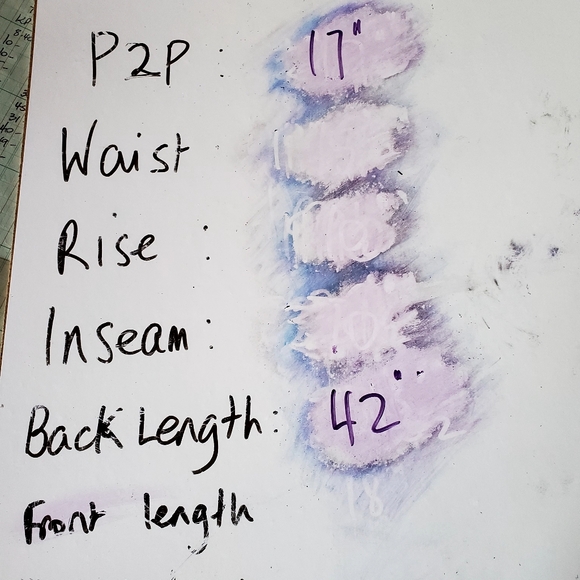 P2P : 17"
Waist
Rise :
Inseam :
Back Length : 42"
Front length